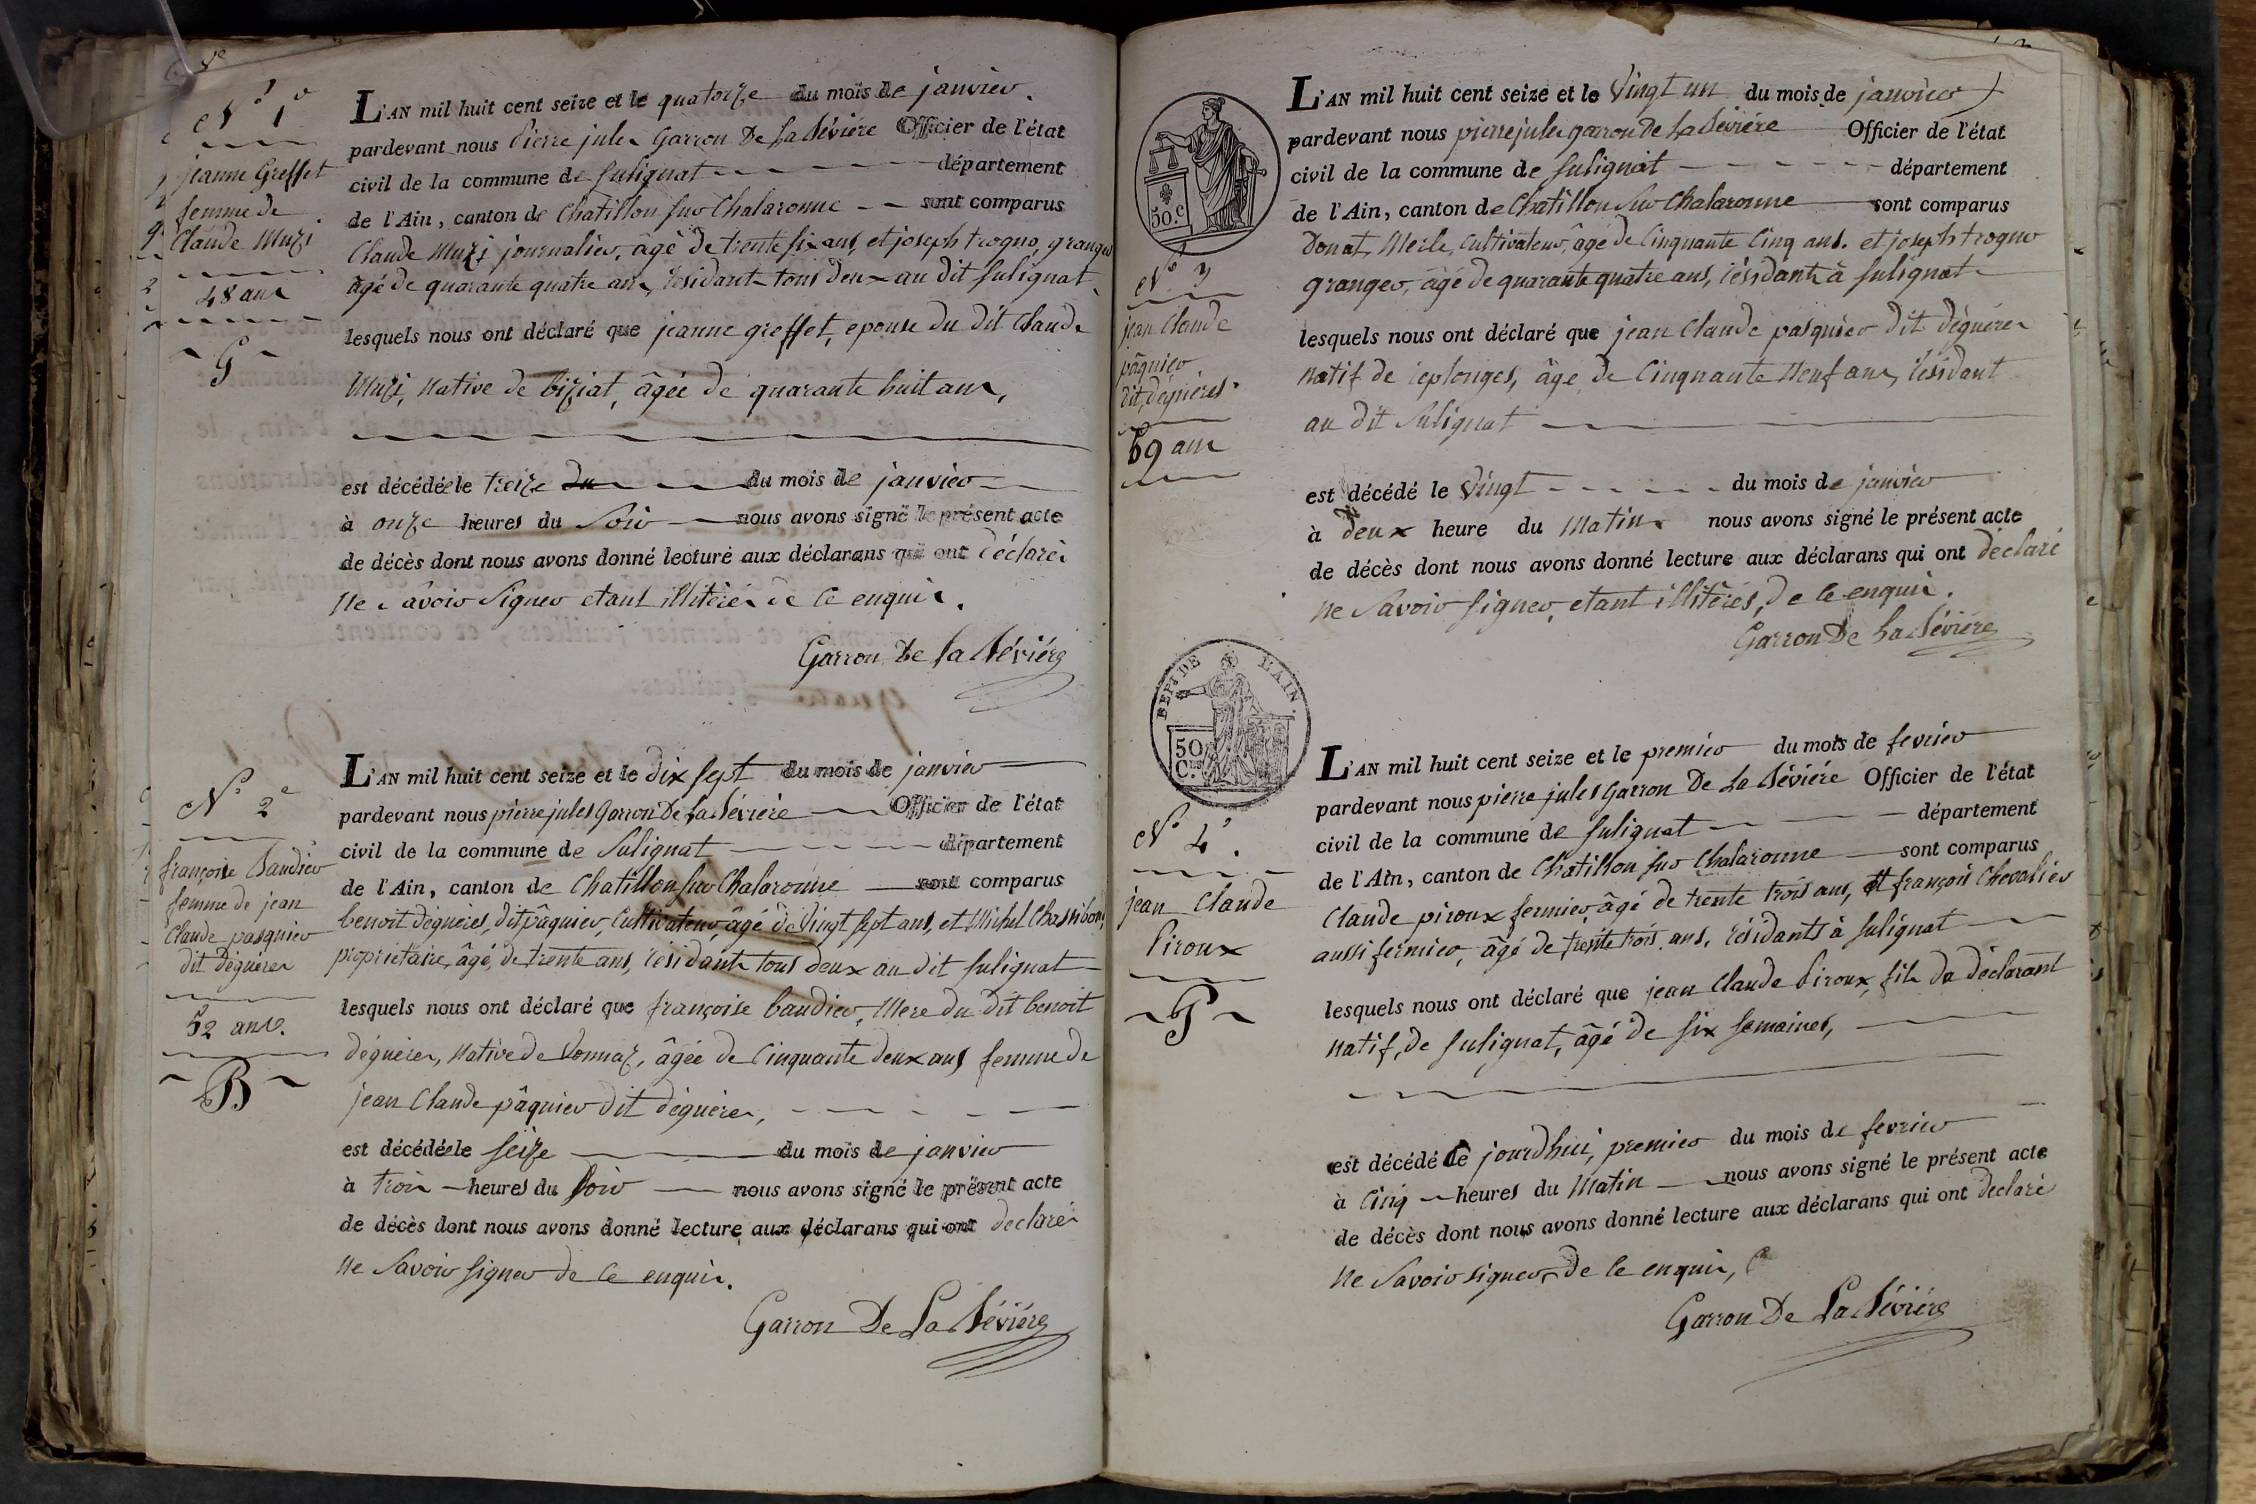 N° 1°
jeanne Greffet
femme de
Claude Muzi
48 ans
G
L'AN mil huit cent seize et le quatorze du mois de janvier.
pardevant nous Pierre jules Garron De La Béviére Officier de l'état
civil de la commune de Sulignat département
de l'Ain, canton de Chatillon sur Chalaronne sont comparus
Claude Muzi journalier, âgé de trente six ans, et joseph trogno, granger
âgé de quarante quatre ans, résidants tous deux au dit Sulignat
lesquels nous ont déclaré que jeanne greffet, epouse du dit Claude
Muzi, Native de biziat, âgée de quarante huit ans,
est décédée le treize du du mois de janvier
à onze heures du Soir nous avons signé le présent acte
de décès dont nous avons donné lecture aux déclarans qui ont déclarés
Ne Savoir Signer etant illiterés de ce enquis.
Garron De La Béviére
N° 2°
françoise Baudier
femme de jean
Claude pasquier
dit Déguéres
52 ans.
B
L'AN mil huit cent seize et le dix sept du mois de janvier
pardevant nous pierre jules Garron De La Béviére Officier de l'état
civil de la commune de Sulignat département
de l'Ain, canton de Chatillon Sur Chalaronne sont comparus
benoit déguéres, dit pâquier, Cultivateur, âgé de Vingt sept ans, et Michel
proprietaire, âgé, de trente ans, résidants tous deux au dit Sulignat
lesquels nous ont déclaré que françoise baudier, Mere du dit benoit
déguéres, Native de Vonnaz, âgée de Cinquante deux ans femme de
jean Claude pâquier dit déguéres,
est décédée le seize du mois de janvier
à trois heures du Soir nous avons signé le présent acte
de décès dont nous avons donné lecture aux déclarans qui ont declarés
Ne Savoir Signer de ce enquis.
Garron De La Béviére
50.c
N° 3
jean Claude
pâquier
dit, déguéres
59 ans
L'AN mil huit cent seize et le Vingt un du mois de janvier
pardevant nous pierre jules garron de La Béviére Officier de l'état
civil de la commune de Sulignat département
de l'Ain, canton de Chatillon Sur Chalaronne sont comparus
Donat, Merle, Cultivateur, âgé de Cinquante Cinq ans. et joseph trogno
granger, âgé de quarante quatre ans, résidants à Sulignat
lesquels nous ont déclaré que jean Claude pasquier dit déguéres
Natif de replonges, âgé de Cinquante Neuf ans, résidant
au dit Sulignat
est décédé le Vingt du mois de janvier
à deux heure du Matin nous avons signé le présent acte
de décès dont nous avons donné lecture aux déclarans qui ont déclaré
Ne Savoir Signer, etant illiterés, de ce enquis.
Garron De La Béviére
DEPT DE L'AIN.
50
C.
N° 4°.
jean Claude
Piroux
P
L'AN mil huit cent seize et le premier du mois de fevrier
pardevant nous pierre jules Garron De La Béviére Officier de l'état
civil de la commune de Sulignat département
de l'Ain, canton de Chatillon sur Chalaronne sont comparus
Claude piroux fermier, âgé de trente trois ans, et françois Chevalier
aussi fermier, âgé de trente trois ans, résidants à Sulignat
lesquels nous ont déclaré que jean Claude Piroux, fils du déclarant
natif, de Sulignat, âgé de six semaines,
est décédé ce jourd'hui, premier du mois de fevrier
à Cinq heures du Matin nous avons signé le présent acte
de décès dont nous avons donné lecture aux déclarans qui ont declaré
Ne Savoir signer de ce enquis,
Garron De La Béviére